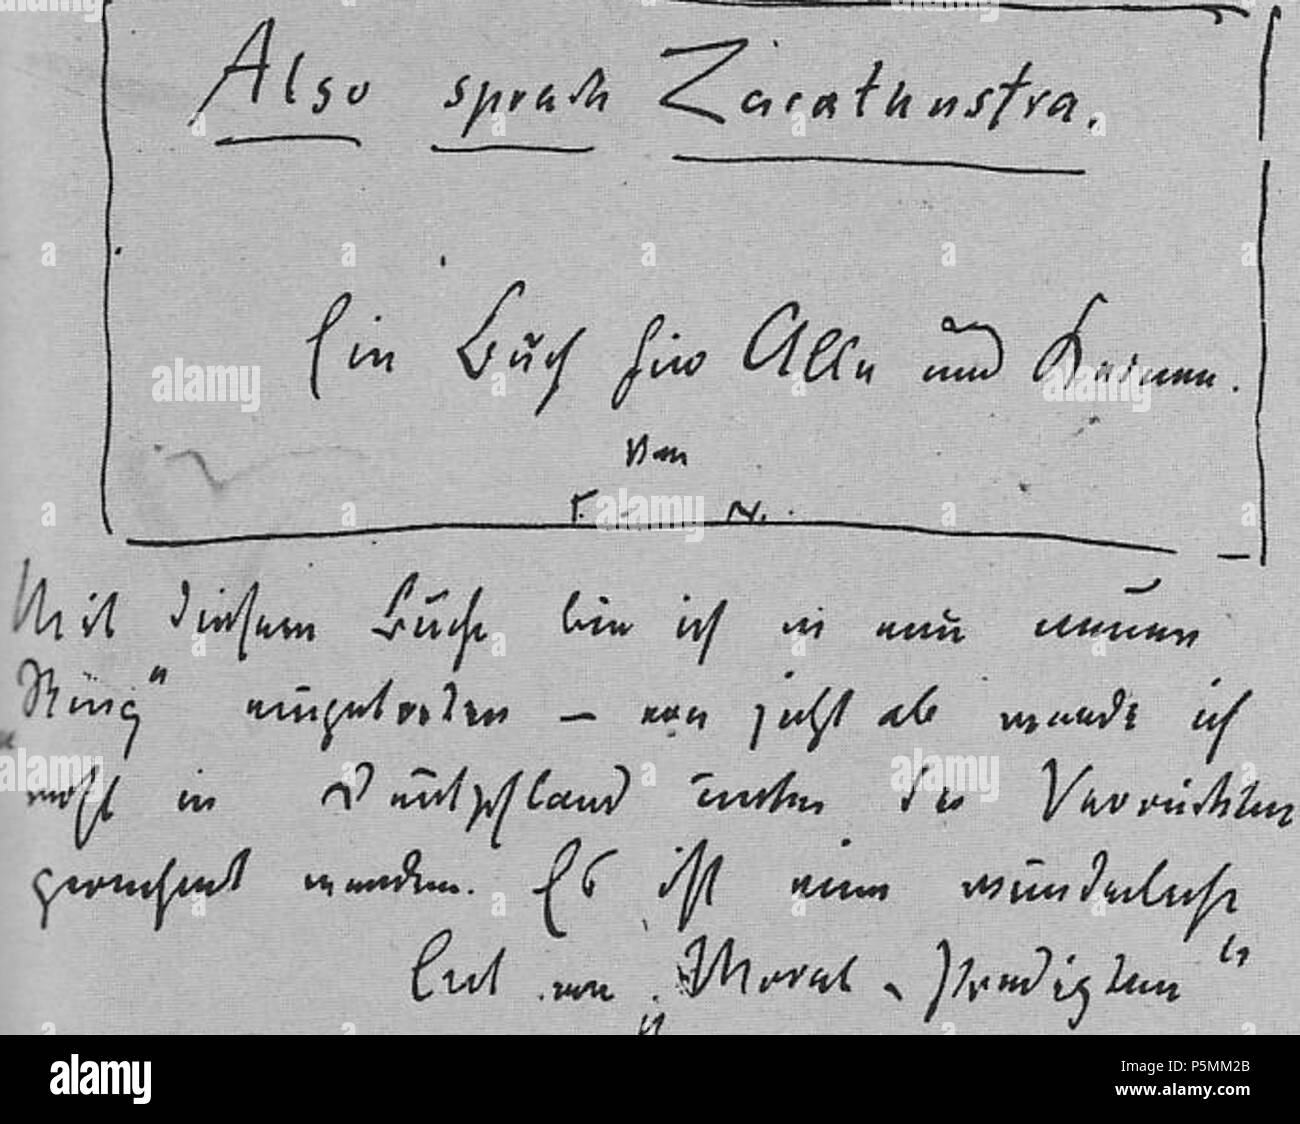 Also sprach Zarathustra.
Ein Buch für Alle und Keinen.
Von
F. N.
Mit diesem Buche bin ich in einen neuen
„Ring“ eingetreten — von jetzt ab werde ich
wohl in Deutschland unter die Verrückten
gerechnet werden. Es ist eine wunderliche
Art von „Moral-Predigten“
alamy
Image ID: P5MM2B
www.alamy.com